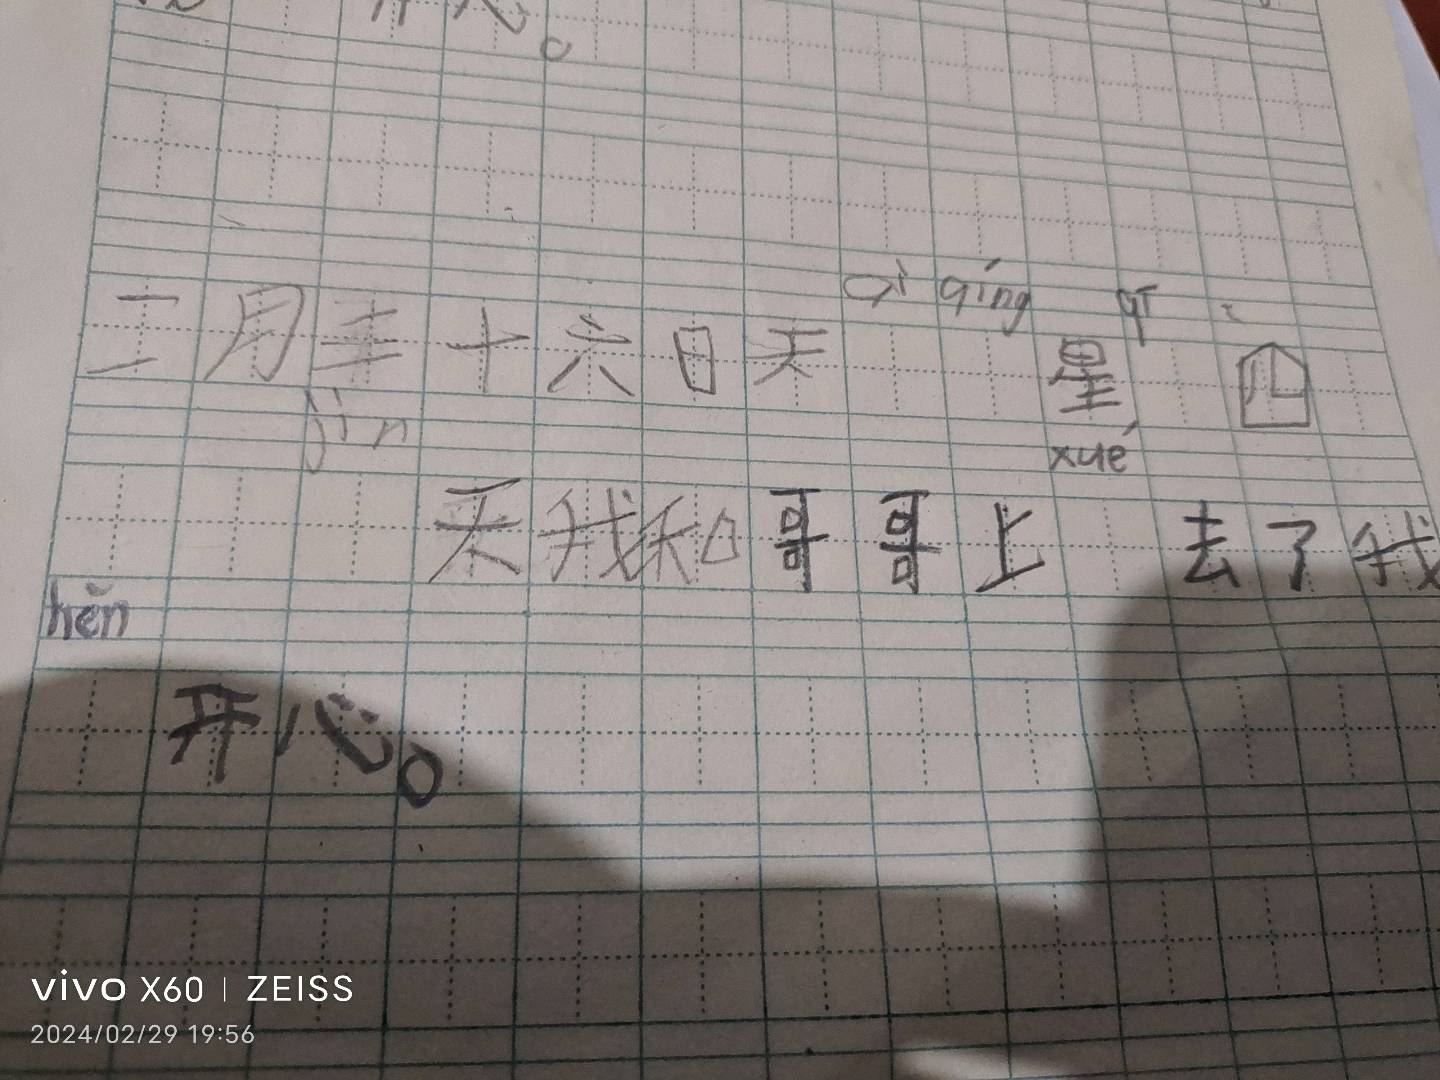 开心。
二月三十六日天 qì qíng 星 qī 四
jīn 天我和哥哥上 xué 去了我
hěn 开心。
vivo X60 | ZEISS
2024/02/29 19:56